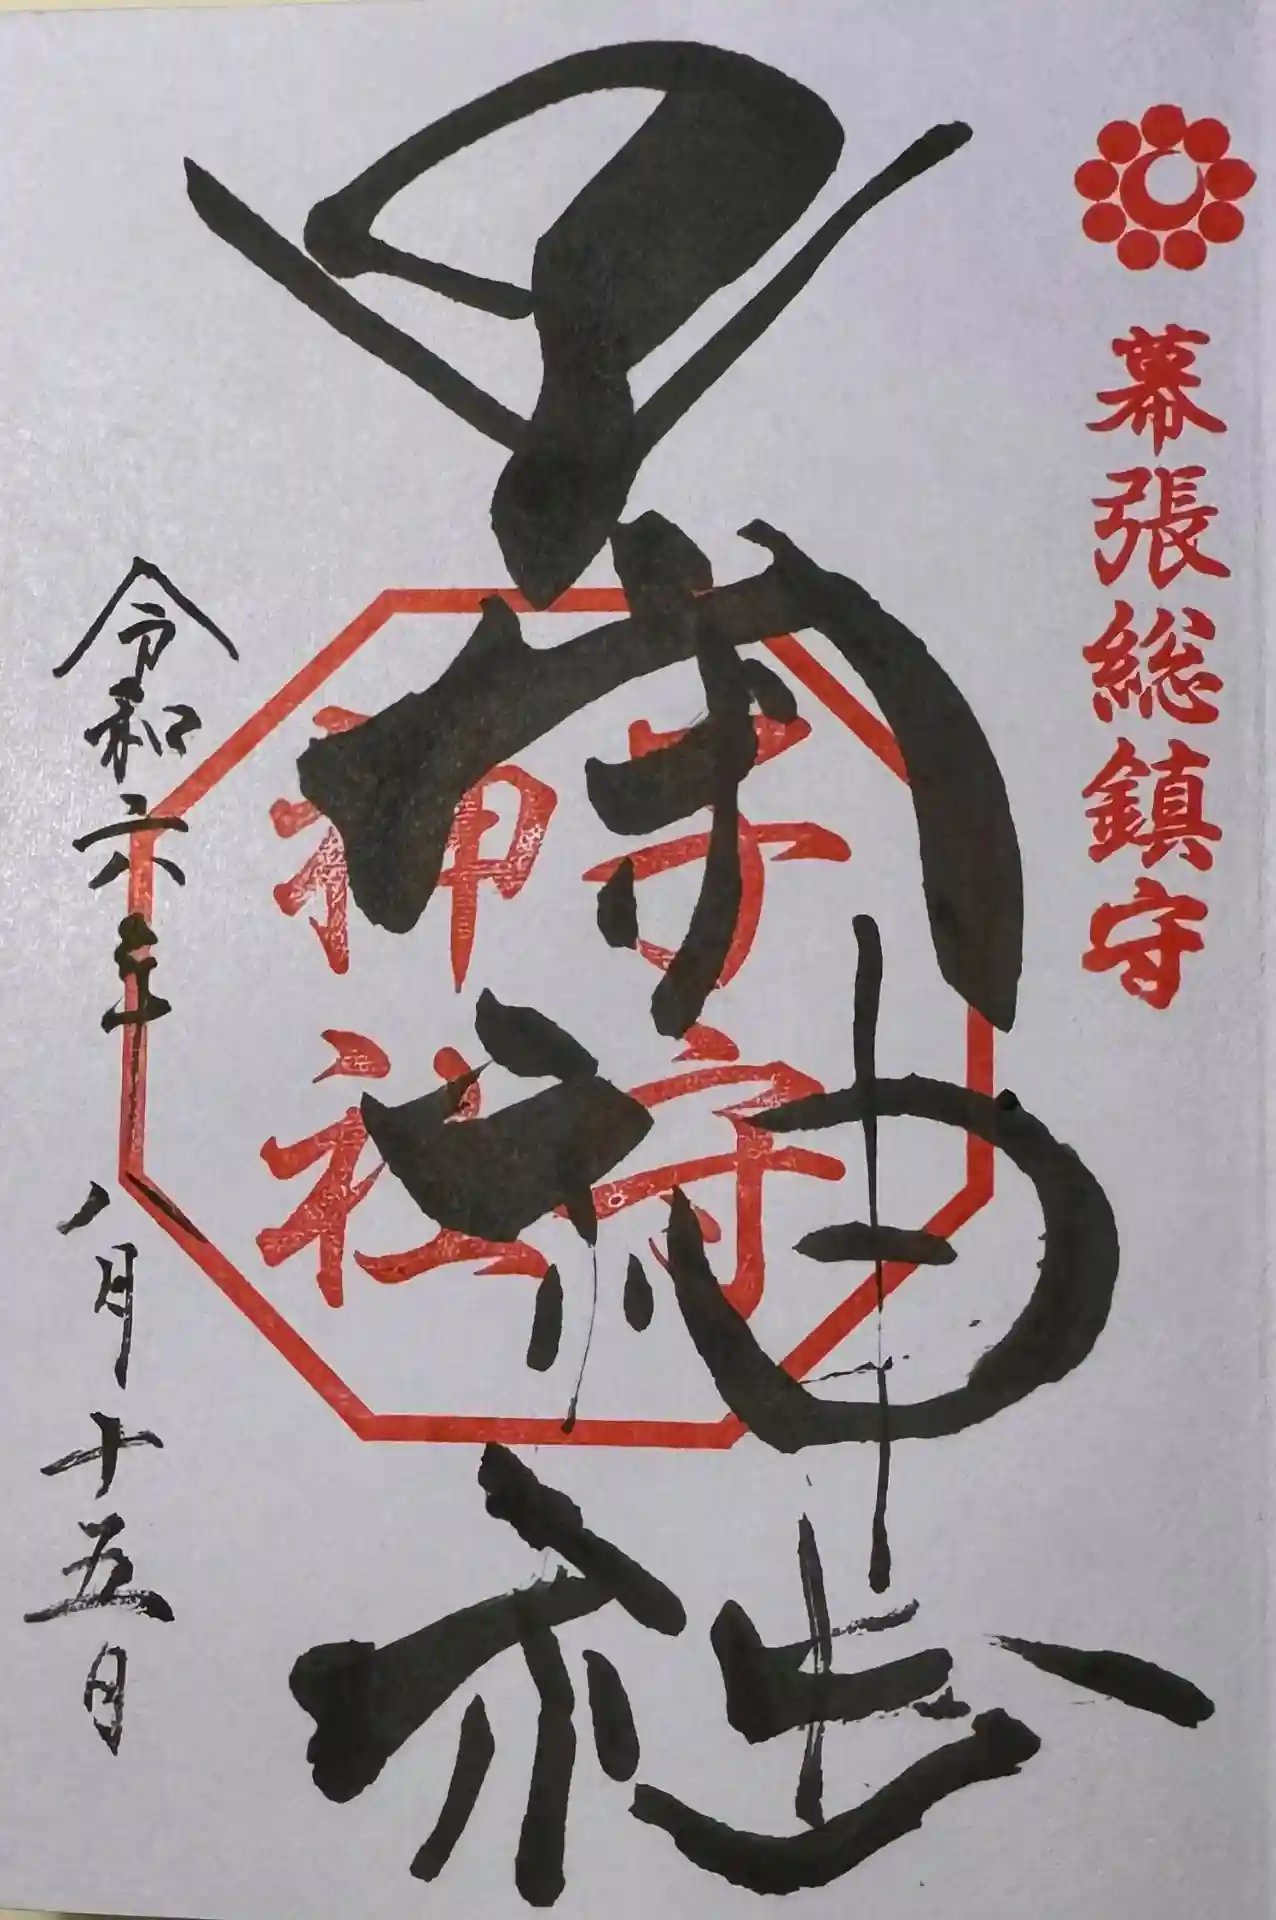 幕張総鎮守
子守神社
子守
神社
令和六年八月十五日